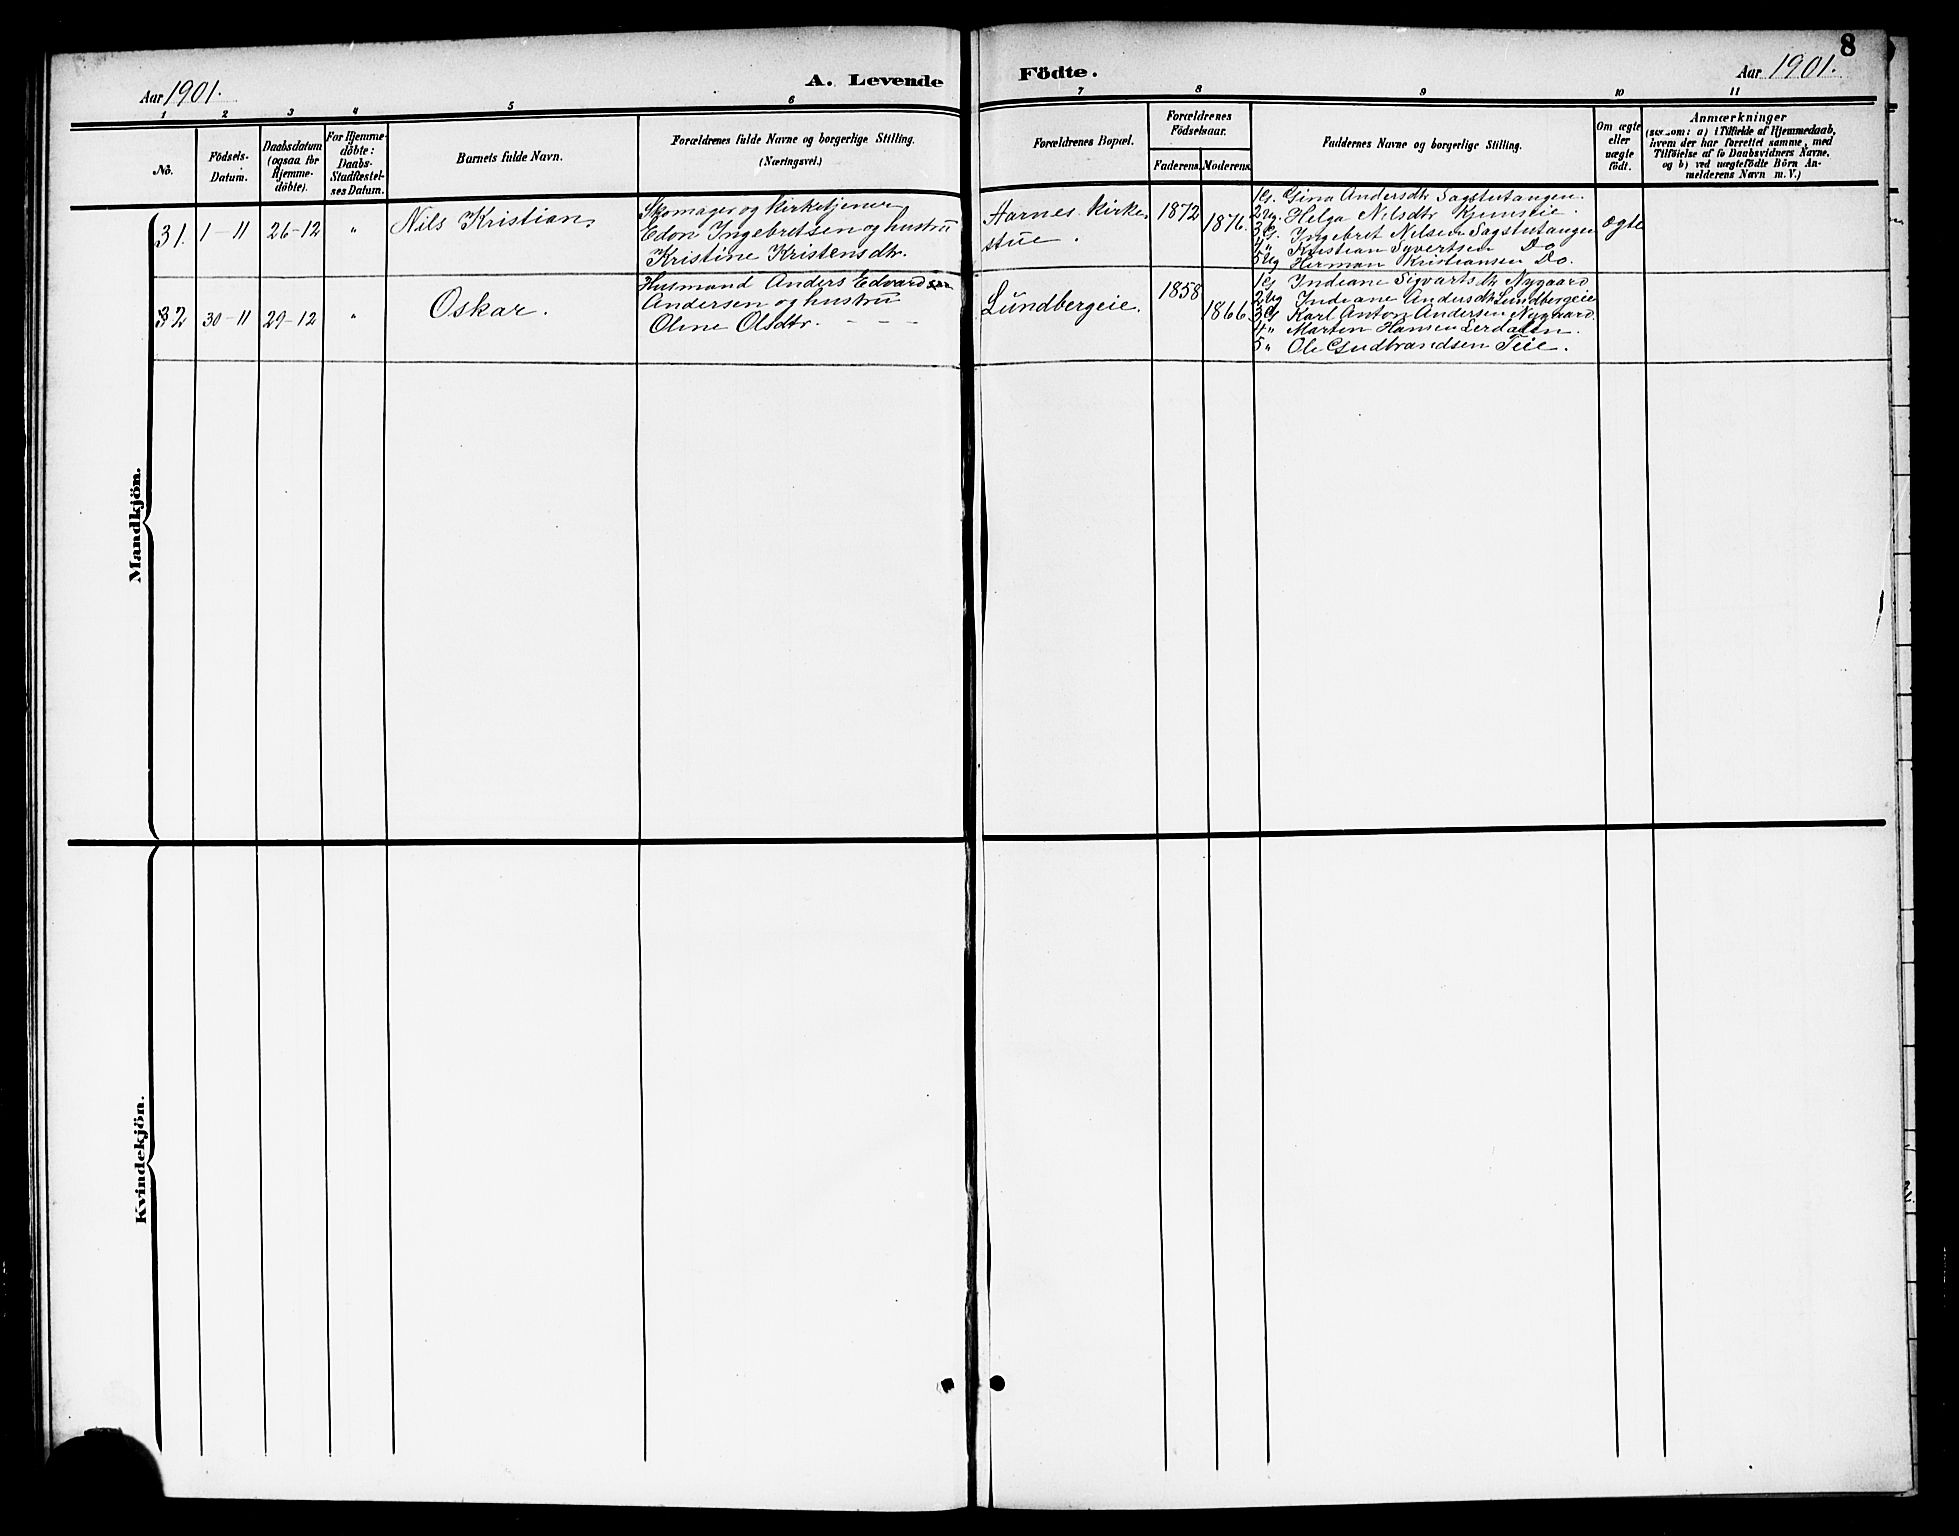 8
Aar 1901.
A. Levende Födte.
Aar 1901.
1 2 3 4 5 6 7 8 9 10 11
No.
Födsels-
Datum.
Daabsdatum
(ogsaa for
Hjemme-
döbte).
For Hjemme-
döbte:
Daabs-
Stadfæstel-
ses Datum.
Barnets fulde Navn.
Forældrenes fulde Navne og borgerlige Stilling.
(Næringsvei.)
Forældrenes Bopæl.
Forældrenes
Födselsaar.
Faderens. Moderens.
Faddernes Navne og borgerlige Stilling.
Om ægte
eller
uægte
födt.
Anmærkninger
(saasom: a) i Tilfælde af Hjemmedaab,
hvem der har forrettet samme, med
Tilföielse af to Daabsvidners Navne,
og b) ved uægtefödte Börn An-
melderens Navn m. V.)
Mandkjön.
31. 1-11 26-12 " Nils Kristian.
Skomager og kirketjener
Edon Ingebretsen og hustru
Kristine Kristensdtr.
Aarnes Kirke
stue.
1872 1876.
1 G. Gina Andersdtr Sagstutangen.
2 Ug. Helga Nilsdtr Kjemseie.
3 G. Ingebret Nilsen Sagstutangen
4 " Kristian Syvertsen Do
5 Ug Herman Kristiansen Do.
Ægte
32 30-11 29-12 " Oskar.
Husmand Anders Edvard
Andersen og hustru
Oline Olsdtr.
Lundbergeie.
1858 1866.
1 G Indiane Sigvartsdtr Nygaard
2 Ug Indiane Andersdtr Lundbergeie
3 G Karl Anton Andersen Nygaard.
4 " Martin Hansen Lerdalen.
5 " Ole Gudbrandsen Teie.
Kvindekjön.